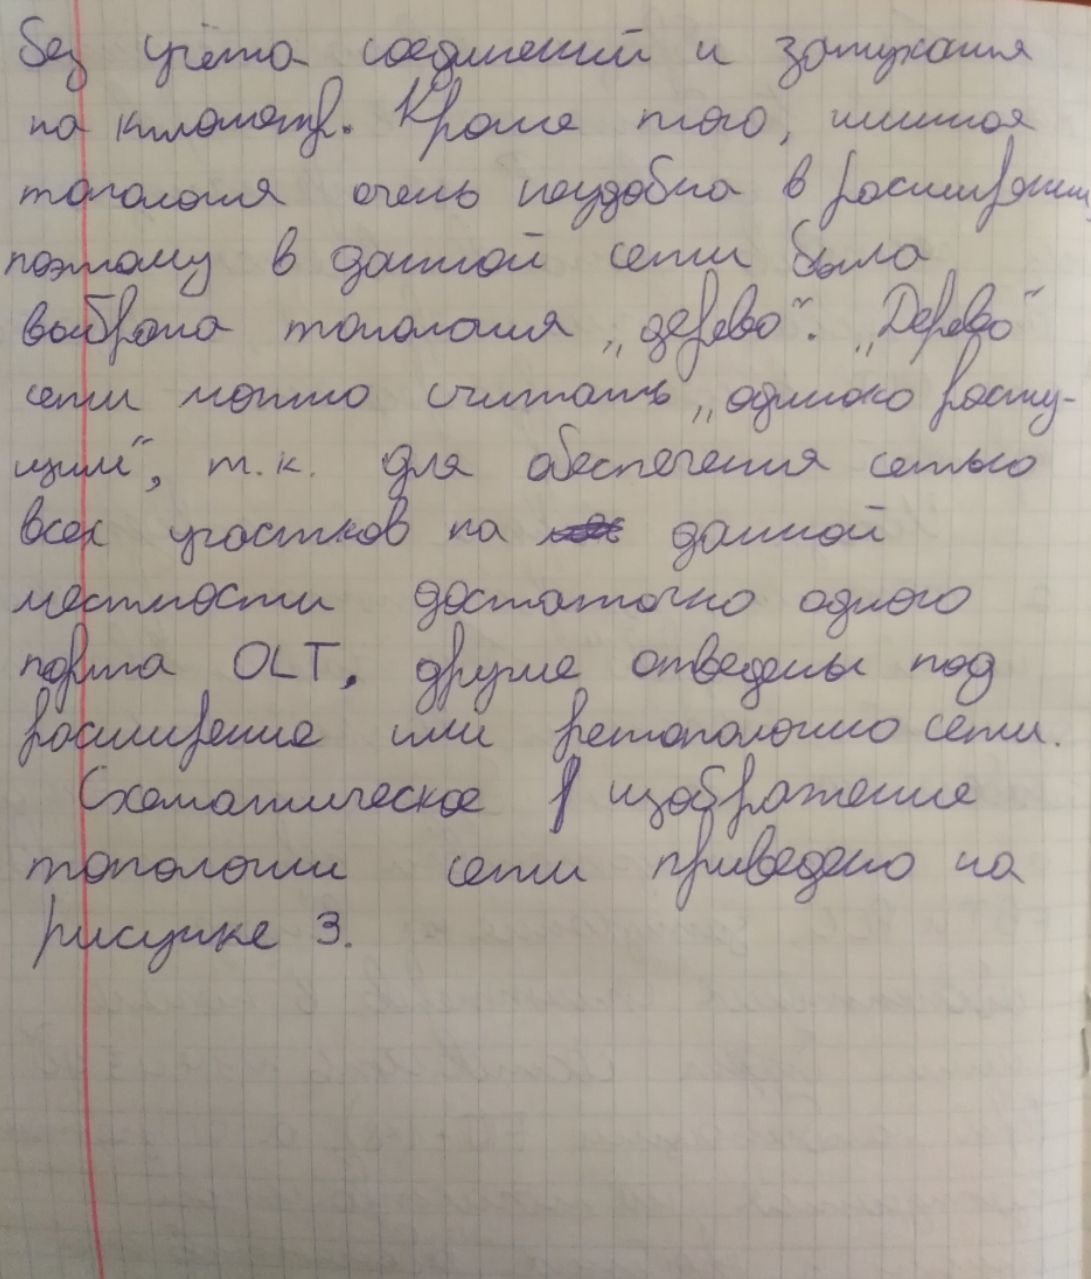 без учёта соединений и затухания
на километр. Кроме того, шинная
топология очень неудобна в расширении,
поэтому в данной сети была
выбрана топология „дерево“. „Дерево“
сети можно считать „одиноко расту-
щим“, т.к. для обеспечения сетью
всех участков на данной
местности достаточно одного
порта OLT, другие отведены под
расширение или ретопологию сети.
Схематическое изображение
топологии сети приведено на
рисунке 3.